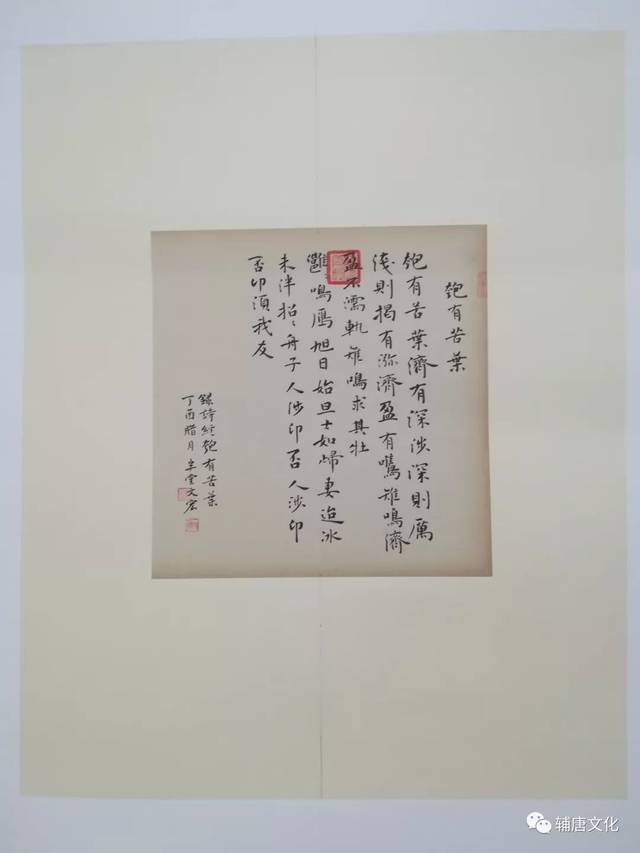 匏有苦葉
匏有苦葉濟有深涉深則厲
淺則揭有瀰濟盈有鷕雉鳴濟
盈不濡軌雉鳴求其牡
雝鳴鴈旭日始旦士如歸妻迨冰
未泮招〻舟子人涉卬否人涉卬
否卬須我友
錄詩經匏有苦葉
丁酉腊月 堂文宏
辅唐文化